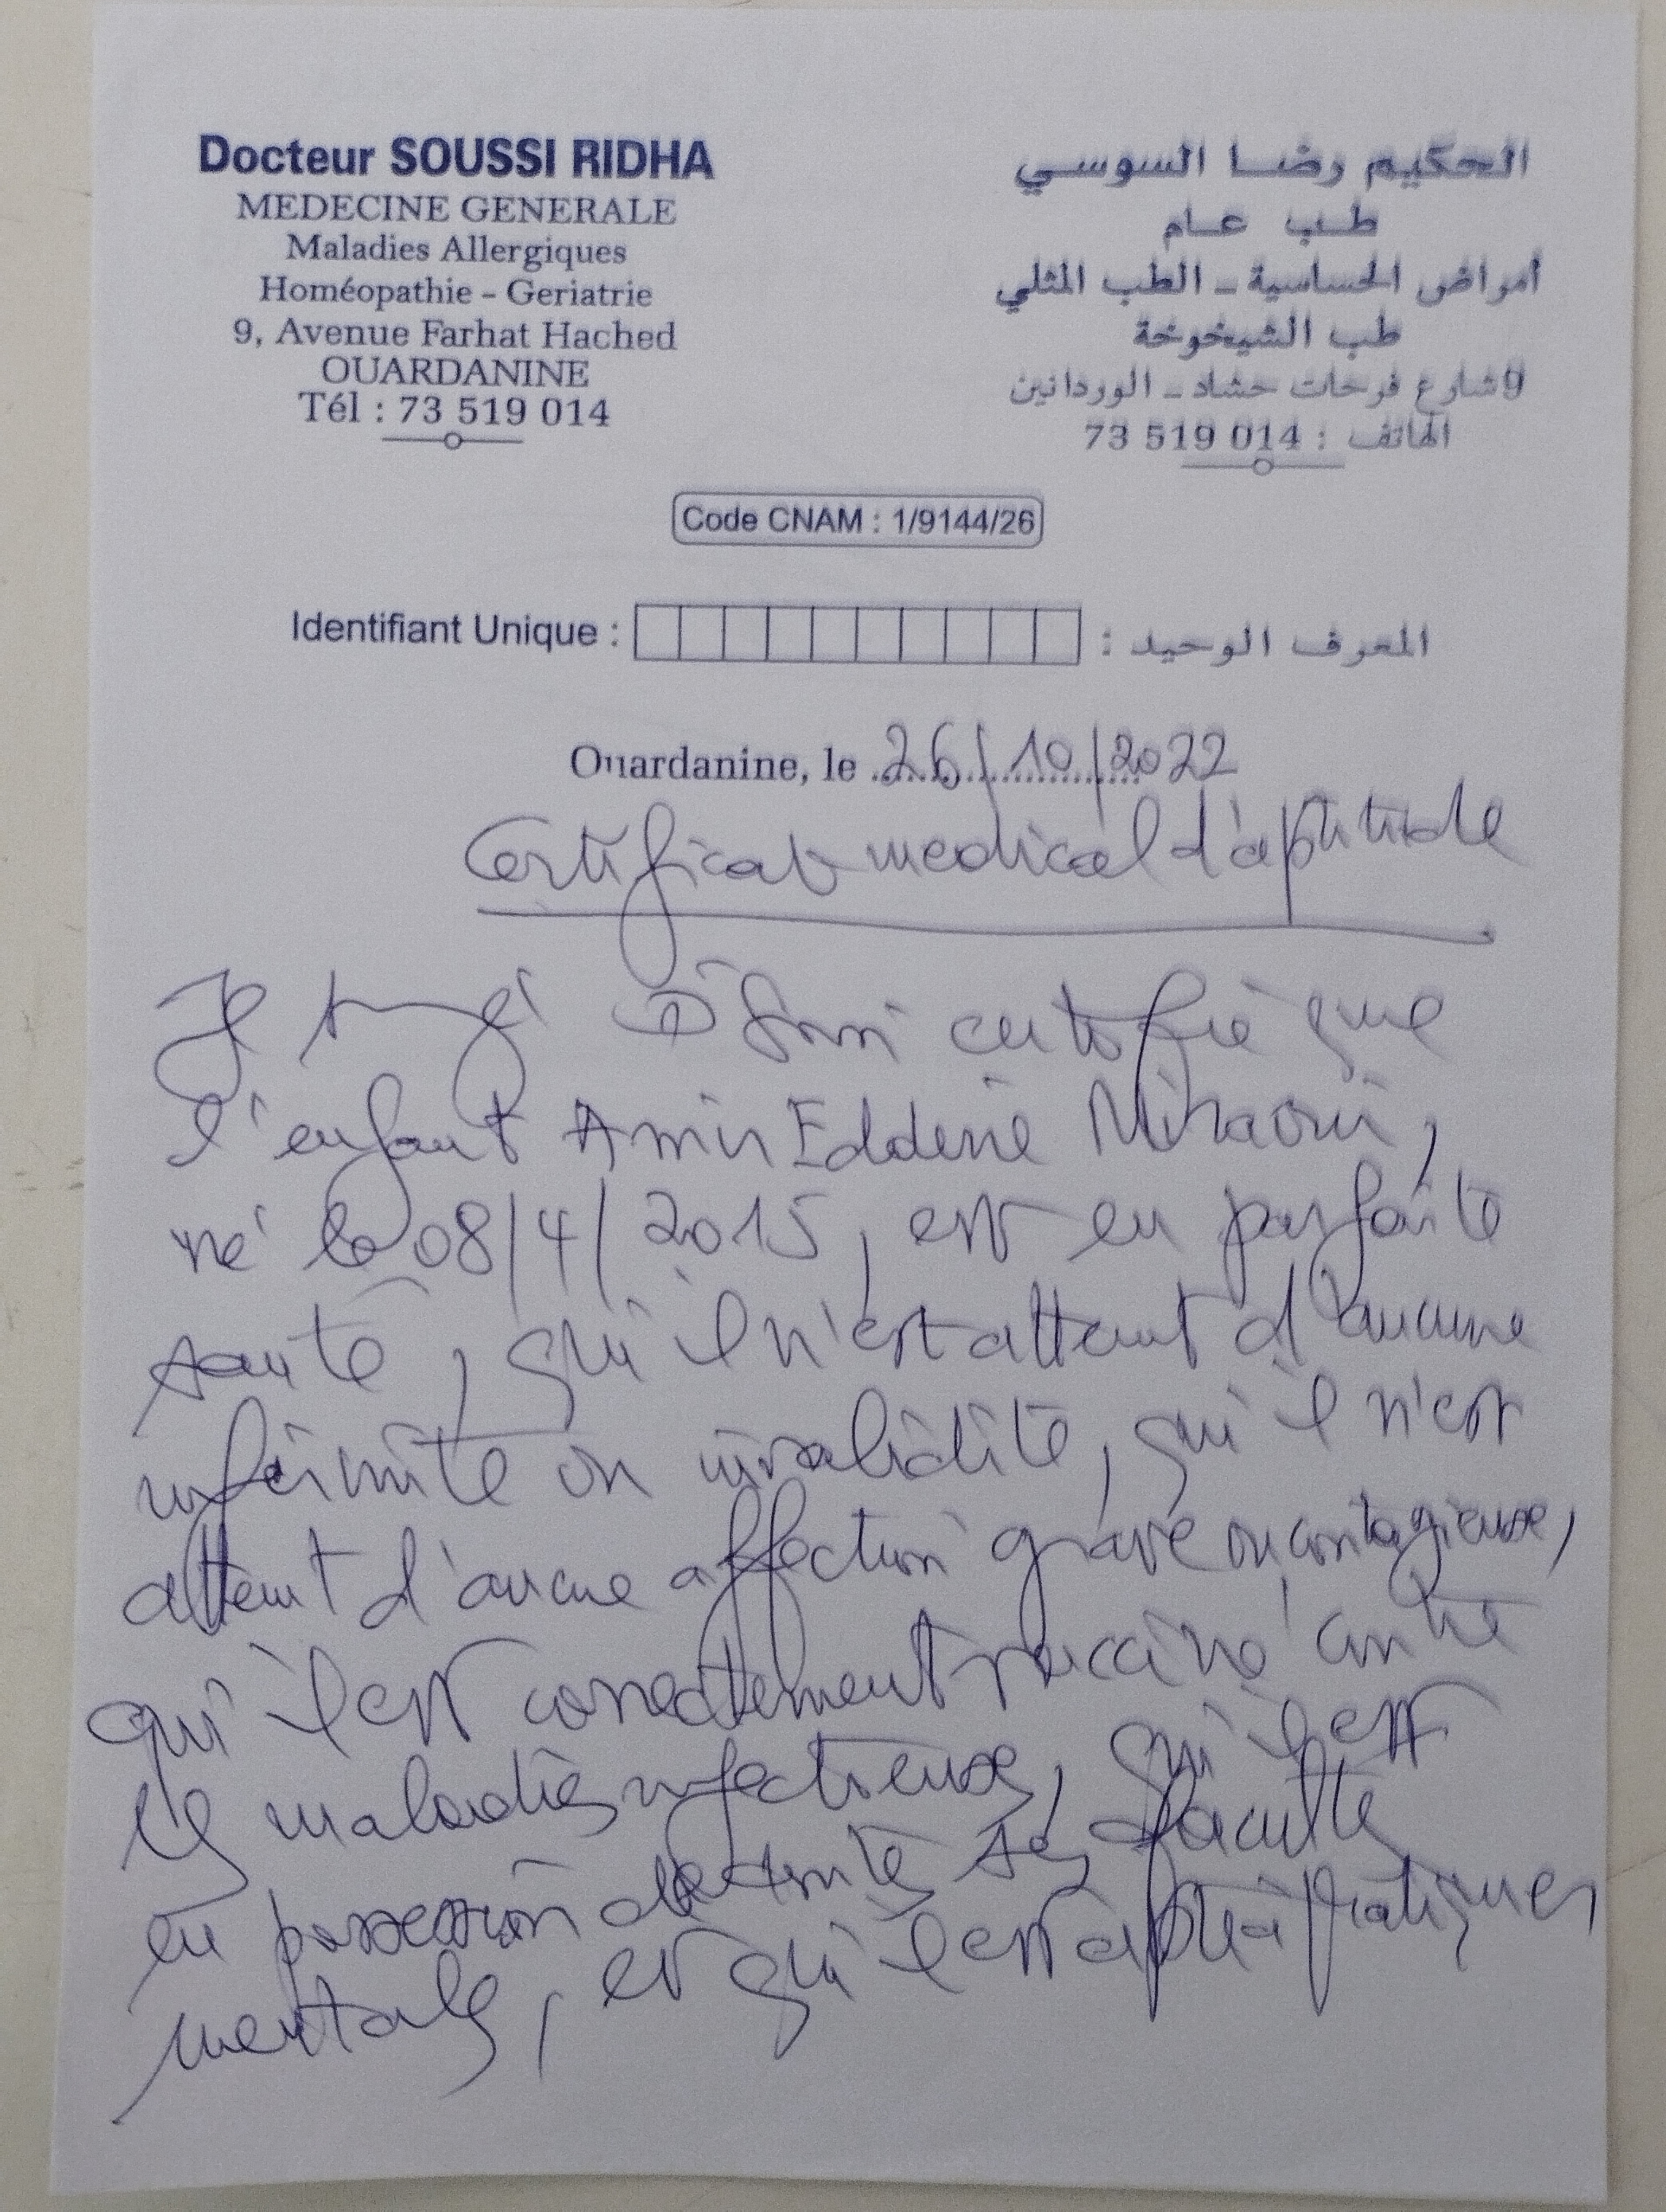 Docteur SOUSSI RIDHA
MEDECINE GENERALE
Maladies Allergiques
Homéopathie - Geriatrie
9, Avenue Farhat Hached
OUARDANINE
Tél : 73 519 014
الحكيم رضا السوسي
طب عام
أمراض الحساسية - الطب المثلي
طب الشيخوخة
9 شارع فرحات حشاد - الوردانين
الهاتف : 73 519 014
Code CNAM : 1/9144/26
Identifiant Unique : المعرف الوحيد :
Ouardanine, le 26/10/2022
Certificat medical d'aptitude
Je certifie que
l'enfant Amir Eddene
né le 08/4/2015, est en parfaite
santé, qu'il n'est atteint d'aucune
infirmité ou invalidité, qu'il n'est
atteint d'aucune affection grave ou contagieuse,
qu'il est correctement vacciné contre
les maladies infectieuses, qu'il est
en possession de toute ses faculté
mentale, et qu'il est apte à pratiquer